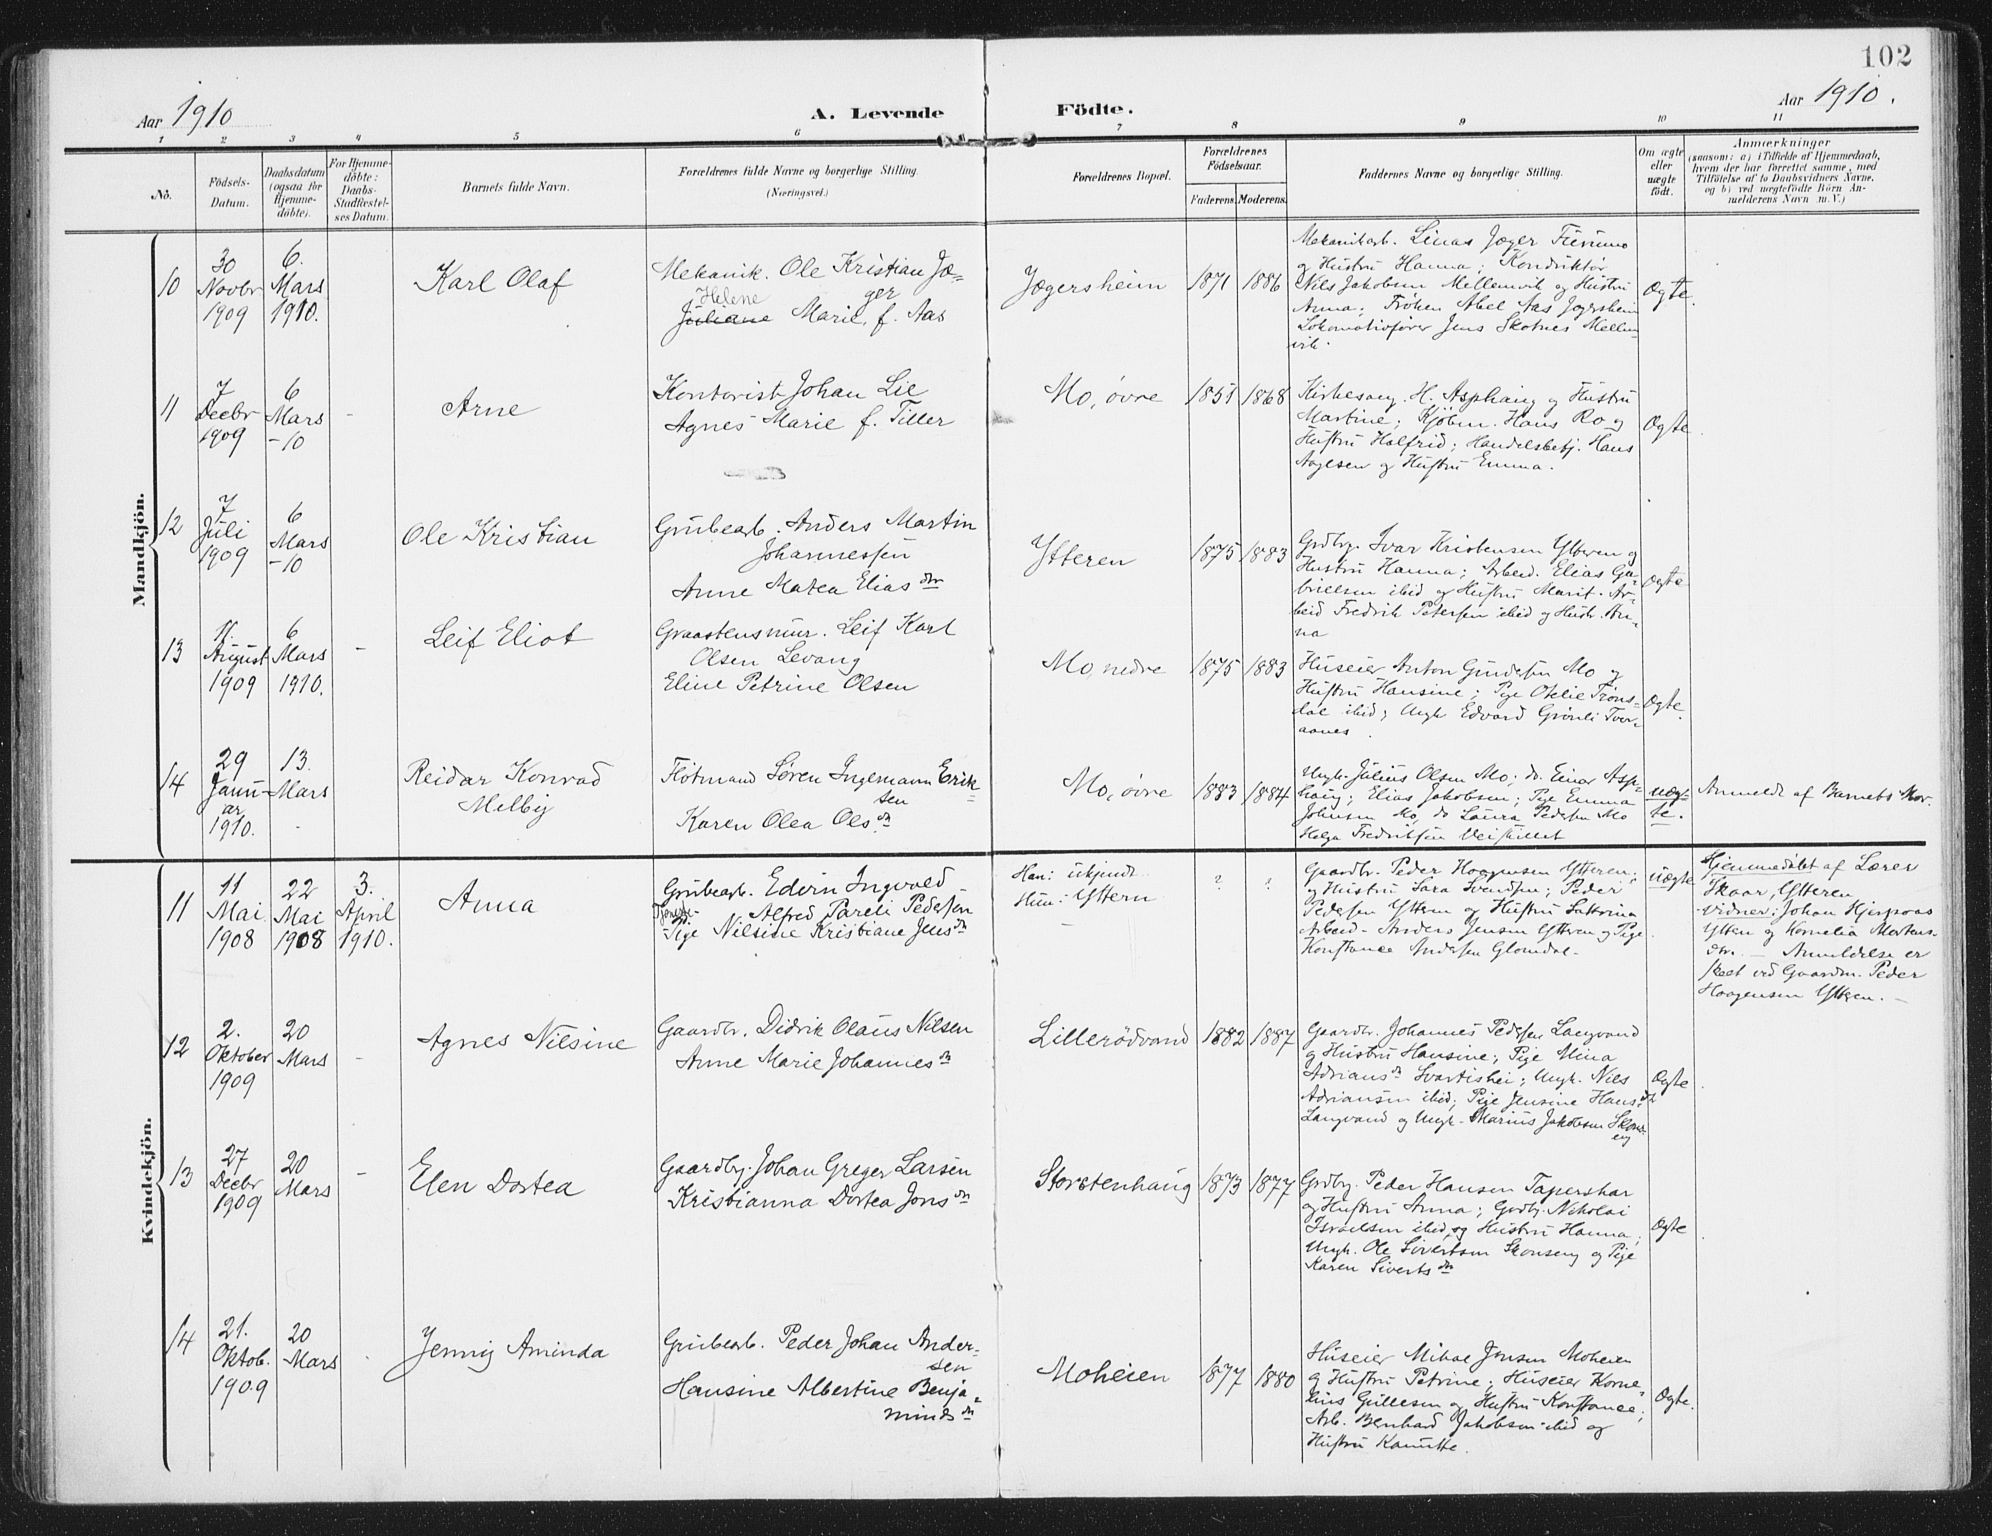 102
Aar 1910
A. Levende
Födte.
Aar 1910.
1 2 3 4 5 6 7 8 9 10 11
No.
Födsels-
Datum.
Daabsdatum
(ogsaa for
Hjemme-
döbte).
For Hjemme-
döbte:
Daabs-
Stadfæstel-
ses Datum.
Barnets fulde Navn.
Forældrenes fulde Navne og borgerlige Stilling.
(Næringsvei.)
Forældrenes Bopæl.
Forældrenes
Födselsaar.
Faderens. Moderens.
Faddernes Navne og borgerlige Stilling.
Om ægte
eller
uægte
födt.
Anmærkninger
(saasom: a) i Tilfælde af Hjemmedaab,
hvem der har forrettet samme, med
Tilföielse af to Daabsvidners Navne,
og b) ved uægtefödte Börn An-
melderens Navn m. V.)
Mandkjön.
10
30
Novbr
1909
6.
Mars
1910.
Karl Olaf
Mekanik. Ole Kristian Jæ-
ger
Helene
Juliane Marie, f. Aas
Jægersheim
1871 1886
Mekanikarb. Linas Jæger
og Hustru Hanna; Konduktør
Nils Jakobsen Mellemvik og Hustru
Anna; Frøken Abel Aas Jægersheim
Lokomotivfører Jens Skotnes Mellem
vik.
Ægte.
11
7
Decbr
1909
6
Mars
-10
-
Arne
Kontorist Johan Lie
Agnes Marie f. Tiller
Mo, øvre
1851 1868
Kirkesang. H. Asphaug og Hustru
Martine; Kjøbm. Hans Ro og
Hustru Halfrid; Handelsbetj. Hans
Aagesen og Hustru Emma.
Ægte.
12
7
Juli
1909
6
Mars
-10
Ole Kristian
Grubearb. Anders Martin
Johannessen
Anne Matea Elias dtr
Ytteren
1875 1883
Grdbr. Ivar Kristensen Ytteren og
Hustru Hanna; Arbeid. Elias Ga-
brielsen ibid og Hustru Marit. Ar-
beid Fredrik Petersen ibid og Hustr. An-
na
Ægte
13
11.
August
1909
6
Mars
1910.
-
Leif Eliot
Graastensmur. Leif Karl
Olsen Levang
Eline Petrine Olsen
Mo, nedre
1875 1883
Huseier Anton Gundesen Mo og
Hustru Hansine; Pige Otelie Trøns-
dal ibid; Ungk Edvard Grønli Tver-
aanes.
Ægte.
14
29
Janu-
ar
1910.
13.
Mars
Reidar Konrad
Melby
Fløtmand Søren Ingemann Erik-
sen
Karen Olea Ols dtr
Mo, øvre
1883 1884
Ungk. Julius Olsen Mo; do. Einar Asp-
haug; Elias Jakobsen; Pige Emma
Johnsen Mo, do Laura Pedersen Mo
Helga Fredriksen
uæg-
te.
Anmeldt af Barnets Mor.
Kvindekjön.
11
11
Mai
1908
22
Mai
1908
3.
April
1910.
Anna
Grubearb. Edvin Ingvald
Alfred Pareli Pedersen
Pige Nilsine Kristiane Jens dtr
Han: ukjendt
Hun: Yttern
? ?
Gaardbr. Peder Haagensen Ytteren;
og Hustru Sara Svendsen; Peder
Pedersen Yttern og Hustru Katrina
Arbeid. Anders Jensen Ytteren og Pige
Konstance Andersen Glomdal.
uægte
Hjemmedöbt af Lærer
Skaar, Ytteren
Vidner: Johan Hjerpaas
Ytten og Kornelia Mortens-
dtr. — Anmeldelse er
skeet ved Gaardm. Peder
Haagensen Ytteren. —
12
2.
Oktober
1909
20
Mars
-
Agnes Nilsine
Gaardbr. Didrik Olaus Nilsen
Anne Marie Johannes dtr
Lillerödvand
1882 1887
Gaardbr. Johannes Pedersen Langvand
og Hustru Hansine; Pige Mina
Adrians dtr Svartishei; Ungk. Nils
Adriansen ibid; Pige Jensine Hans dtr
Langvand og Ungk. Marius Jakobsen Skons-
eng
Ægte
13
27
Decbr
1909
20
Mars
-
Elen Dortea
Gaardbr. Johan Greger Larsen
Kristianna Dortea Jons dtr
Storstenhaug
1873 1877
Grdbr. Peder Hansen Taperskar
og Hustru Anna; Grdbr. Nikolai
Israelsen ibid, og Hustru Hanna;
Ungk. Ole Sivertsen Skonseng og Pige
Karen Siverts dtr
Ægte
14
21.
Oktob.
1909
20
Mars
-
Jenny Aminda
Grubearb. Peder Johan Ander-
sen
Hansine Albertine Benja-
minds dtr
Moheien
1877 1880
Huseier Mikal Jensen Moheien
og Hustru Petrine; Huseier Korne-
lius Gullesen og Hustru Konstance;
Arb. Benhard Jakobsen ibid og
Hustru Kanutte.
Ægte.